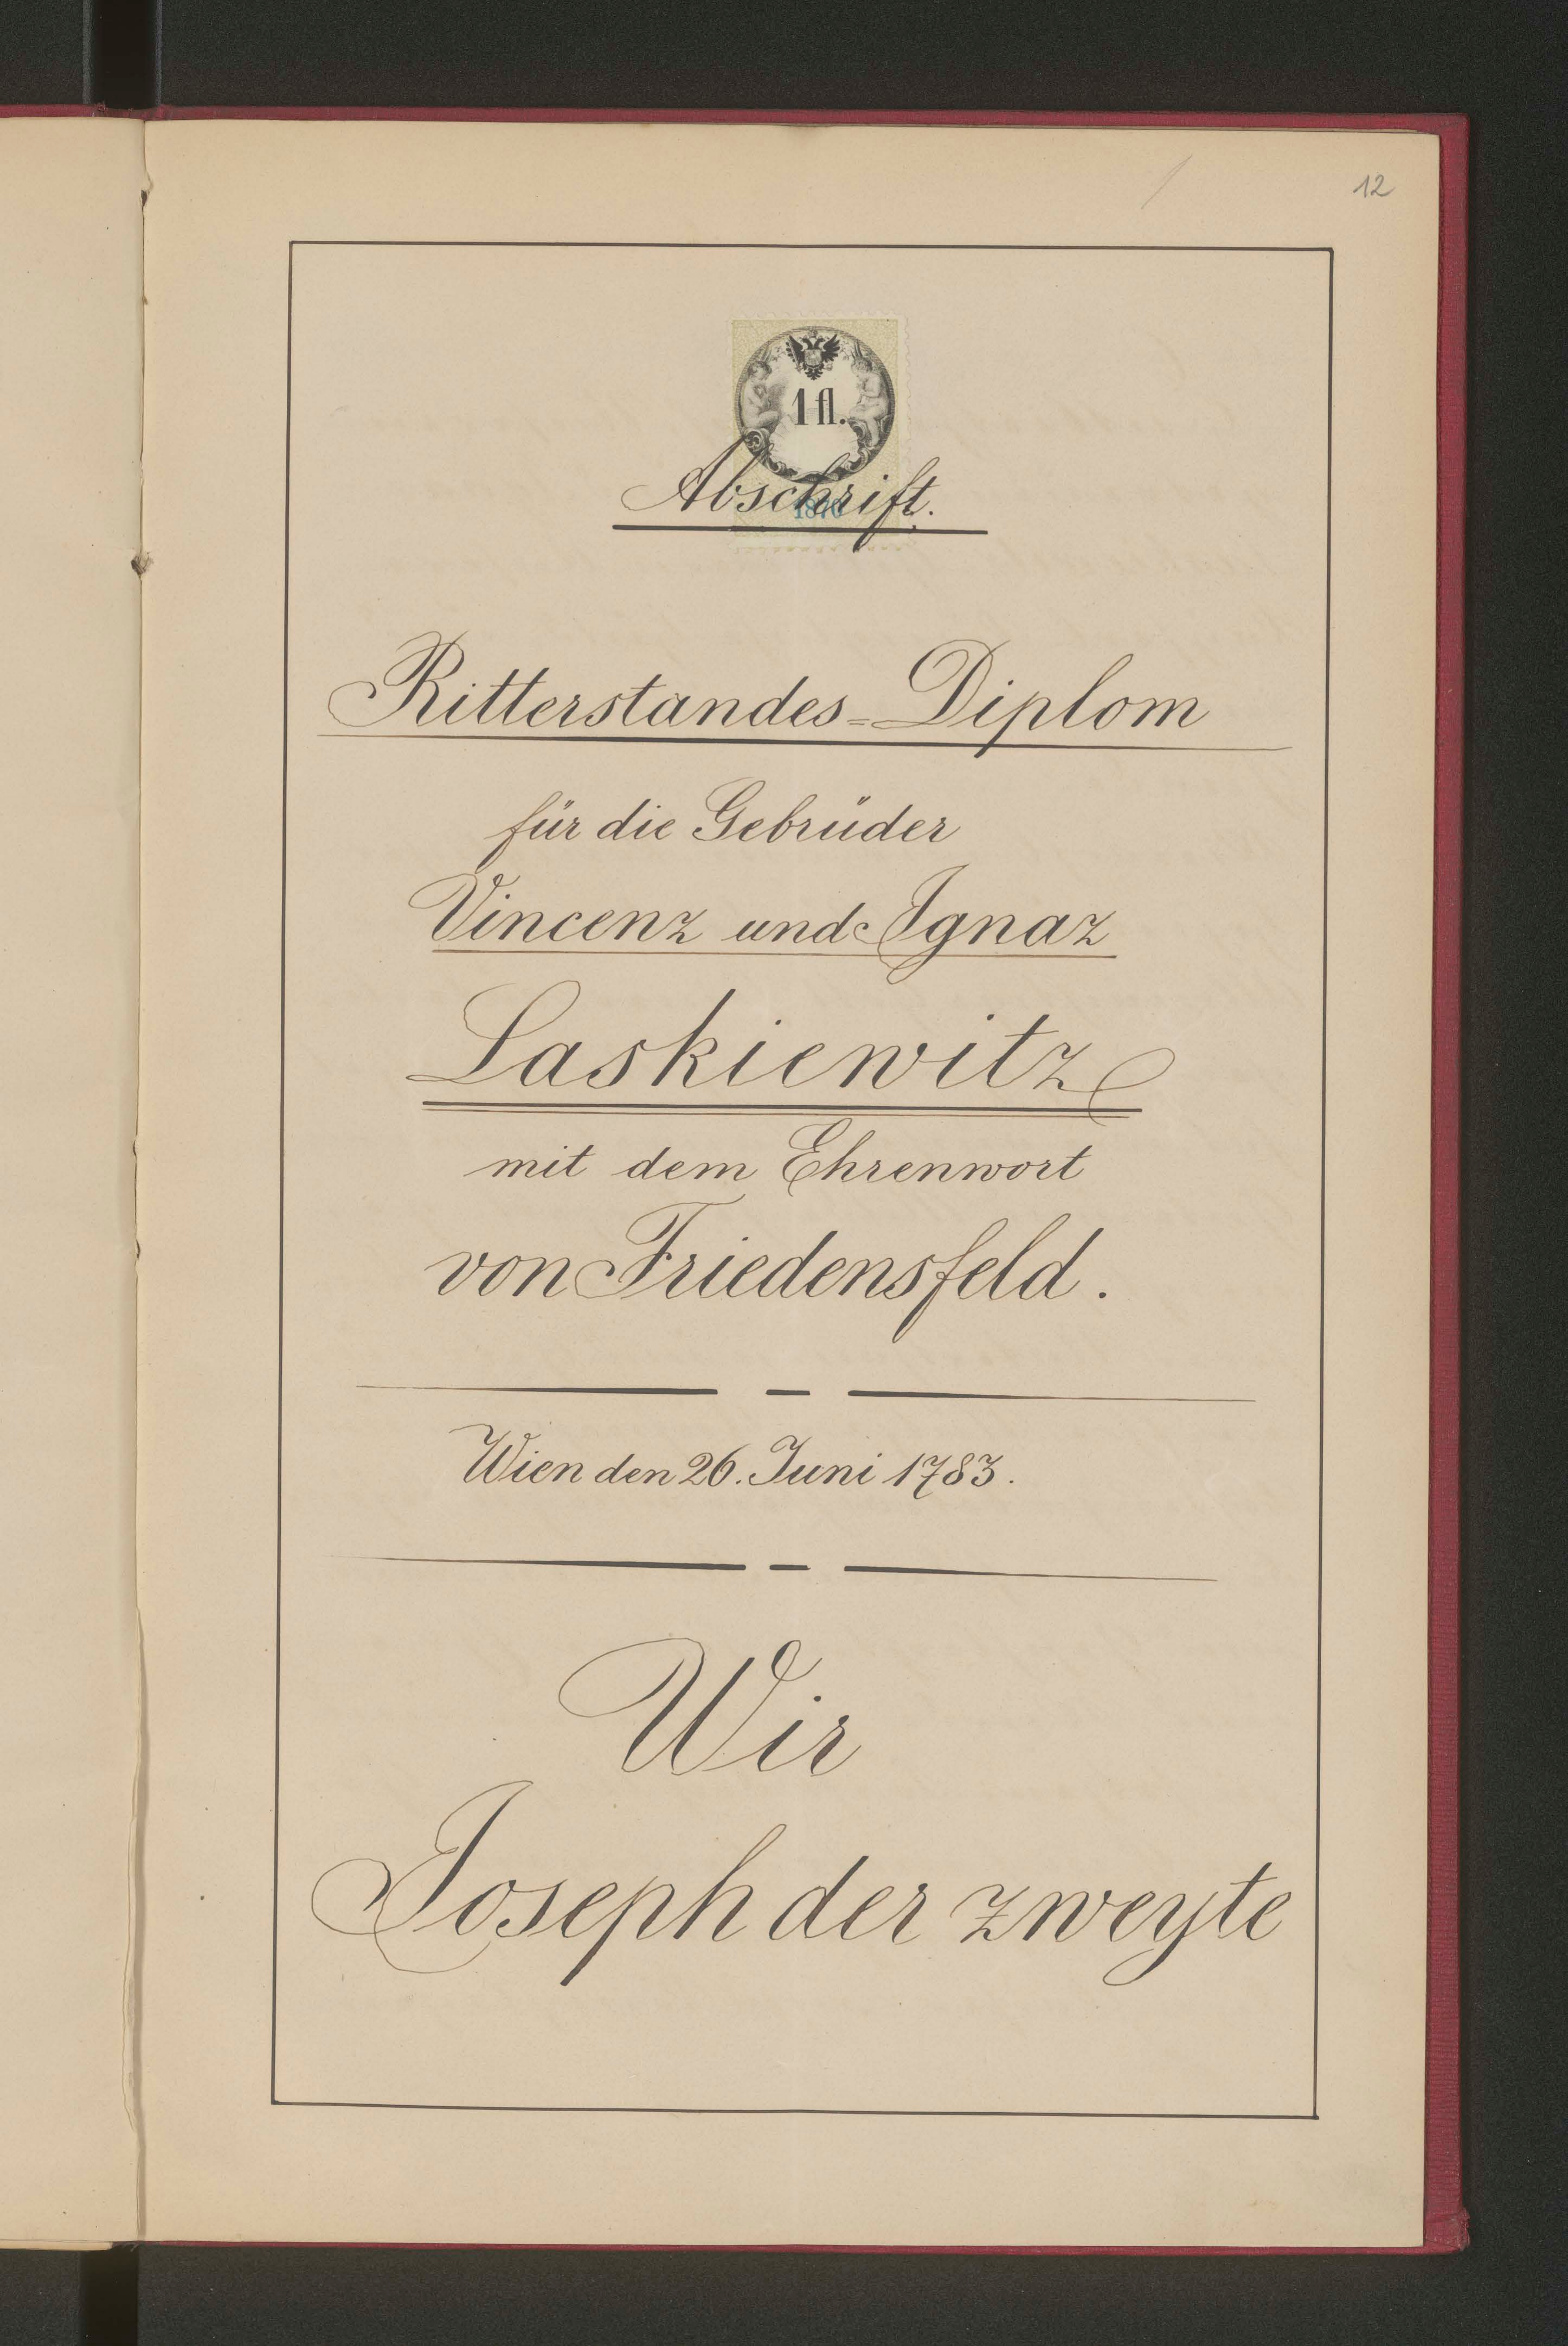 12
1 fl.
Abschrift.
Ritterstandes=Diplom
für die Gebrüder
Vincenz und Ignaz
Laskiewitz
mit dem Ehrenwort
von Friedensfeld.
Wien den 26. Juni 1783.
Wir
Joseph der zweyte